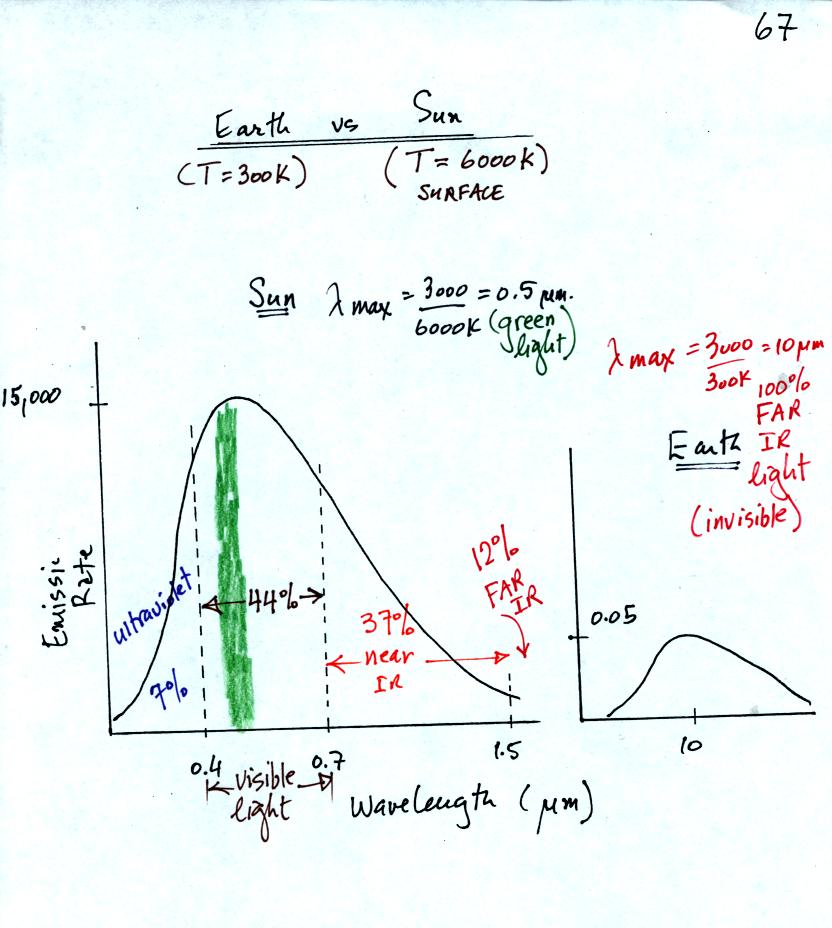 67
Earth vs Sun
(T=300K) (T=6000K)
SURFACE
Sun λmax = 3000/6000K = 0.5 μm.
(green
light)
λmax = 3000/300K = 10 μm
100%
FAR
IR
light
(invisible)
Earth
15,000
Emissic
Rate
ultraviolet
7%
44%
37%
near
IR
12%
FAR
IR
0.4
0.7
1.5
visible
light
Wavelength (μm)
0.05
10